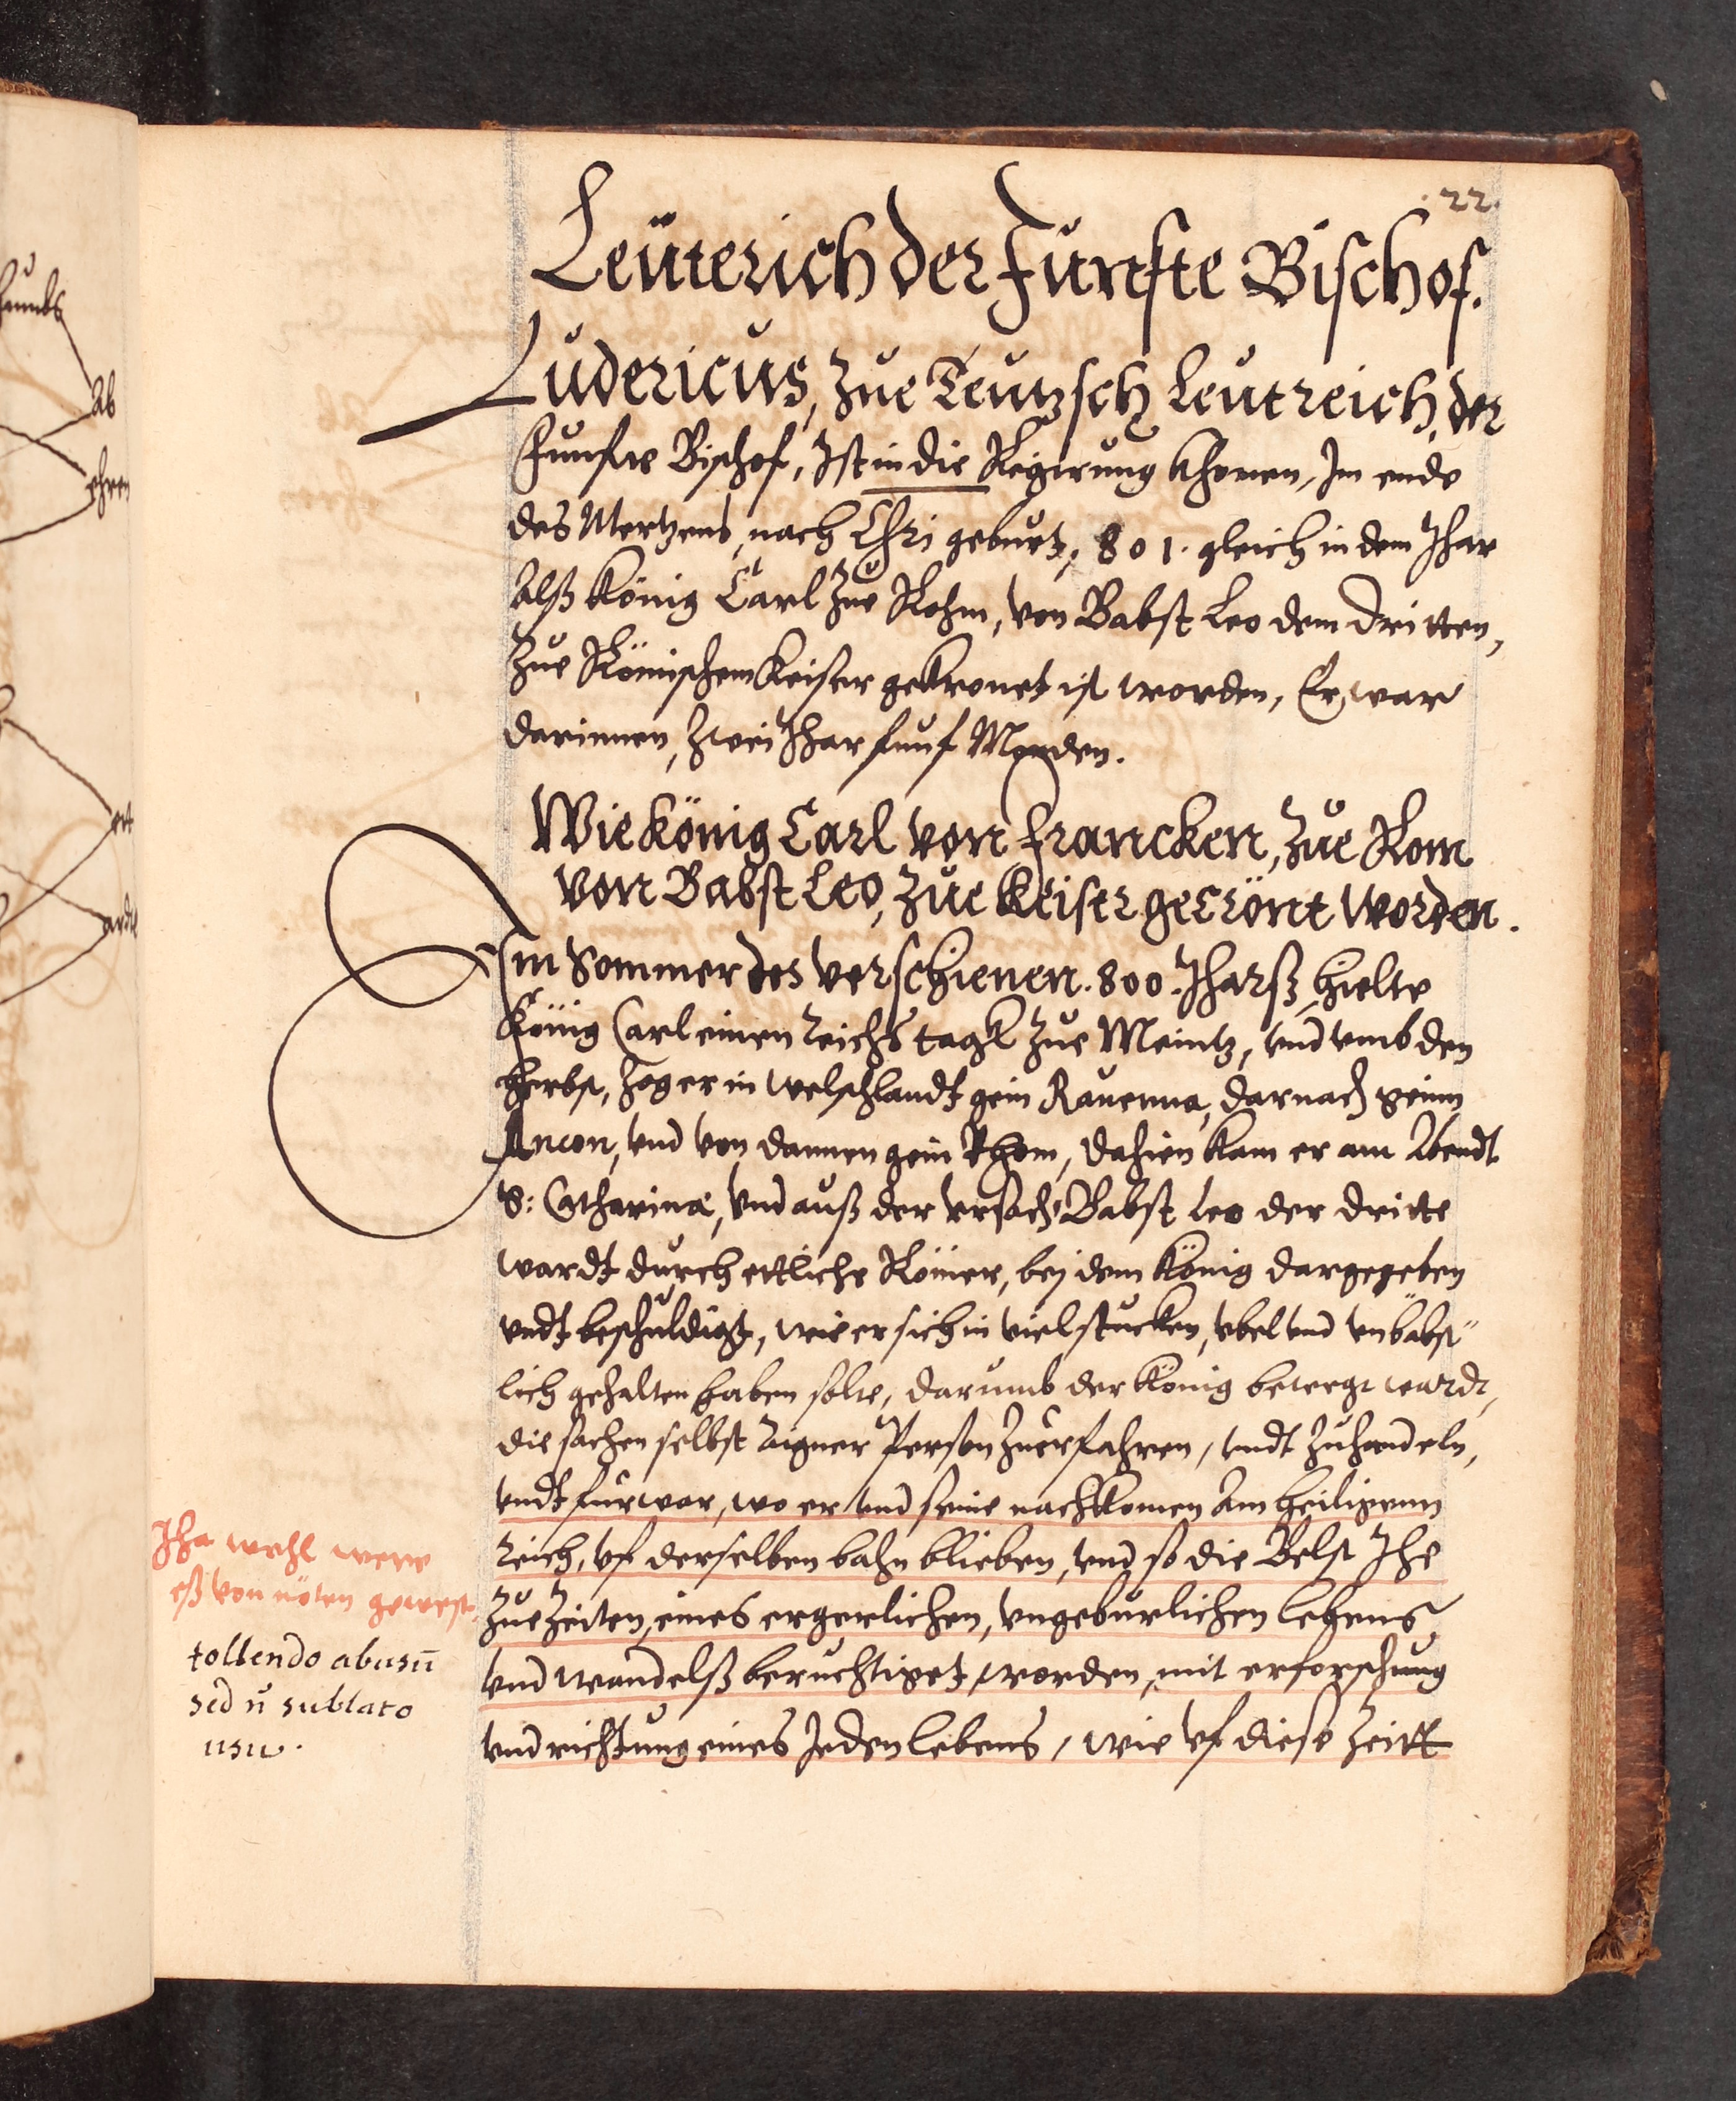 22.
Leüterich der Funfte Bischof.
Ludericus, zue Teutzsch Leutreich, der
Funfte Bischof, Ist in die Regirung khomen, Im ende
des Mertzens, nach Chri geburt, 801. gleich in dem Jhar
Alß König Carl zue Rohm, von Babst Leo dem dritten,
zue Römischem Keiser gekronet ist worden, Er war
darinnen, zwei Jhar funf Monden.
Wie könig Carl von Francken, zue Rom
von Babst Leo, zue Keiser gecrönt worden.
Im Sommer des verschienen. 800. Jharß, hielte
König Carl einen Reichs tagk zue Meintz, vnd vmb den
Herbst, zog er in welschlandt gein Rauenna, darnach geinn
Ancon, vnd von dannen gein Rhom, dahien kam er am Abendt
S: Catharinæ, vnd auß der vrsach, Babst Leo der dritte
wardt durch ettliche Römer, bej dem König dargegeben
vndt beschuldigt, wie er sich in viel stucken, vbel vnd vnbäbst"
lich gehalten haben solte, darumb der König bewegt wardt,
die sachen selbst Aigner Person zuerfahren, vndt zuhandeln,
vndt furwar, wo er vnd seine nachkomen Am heiligenn
Reich, vf derselben bahn blieben, vnd so die Belst Jhe
zue Zeiten, eines ergerlichen, vngeburlichen lebens,
vnd wandelß beruchtiget worden, mit erforschung
vnd richtung eines Jeden lebens, wie vf diese Zeitt
Jha wohl were
eß von nöten gewest
tollendo abusū
sed ū sublato
usu.